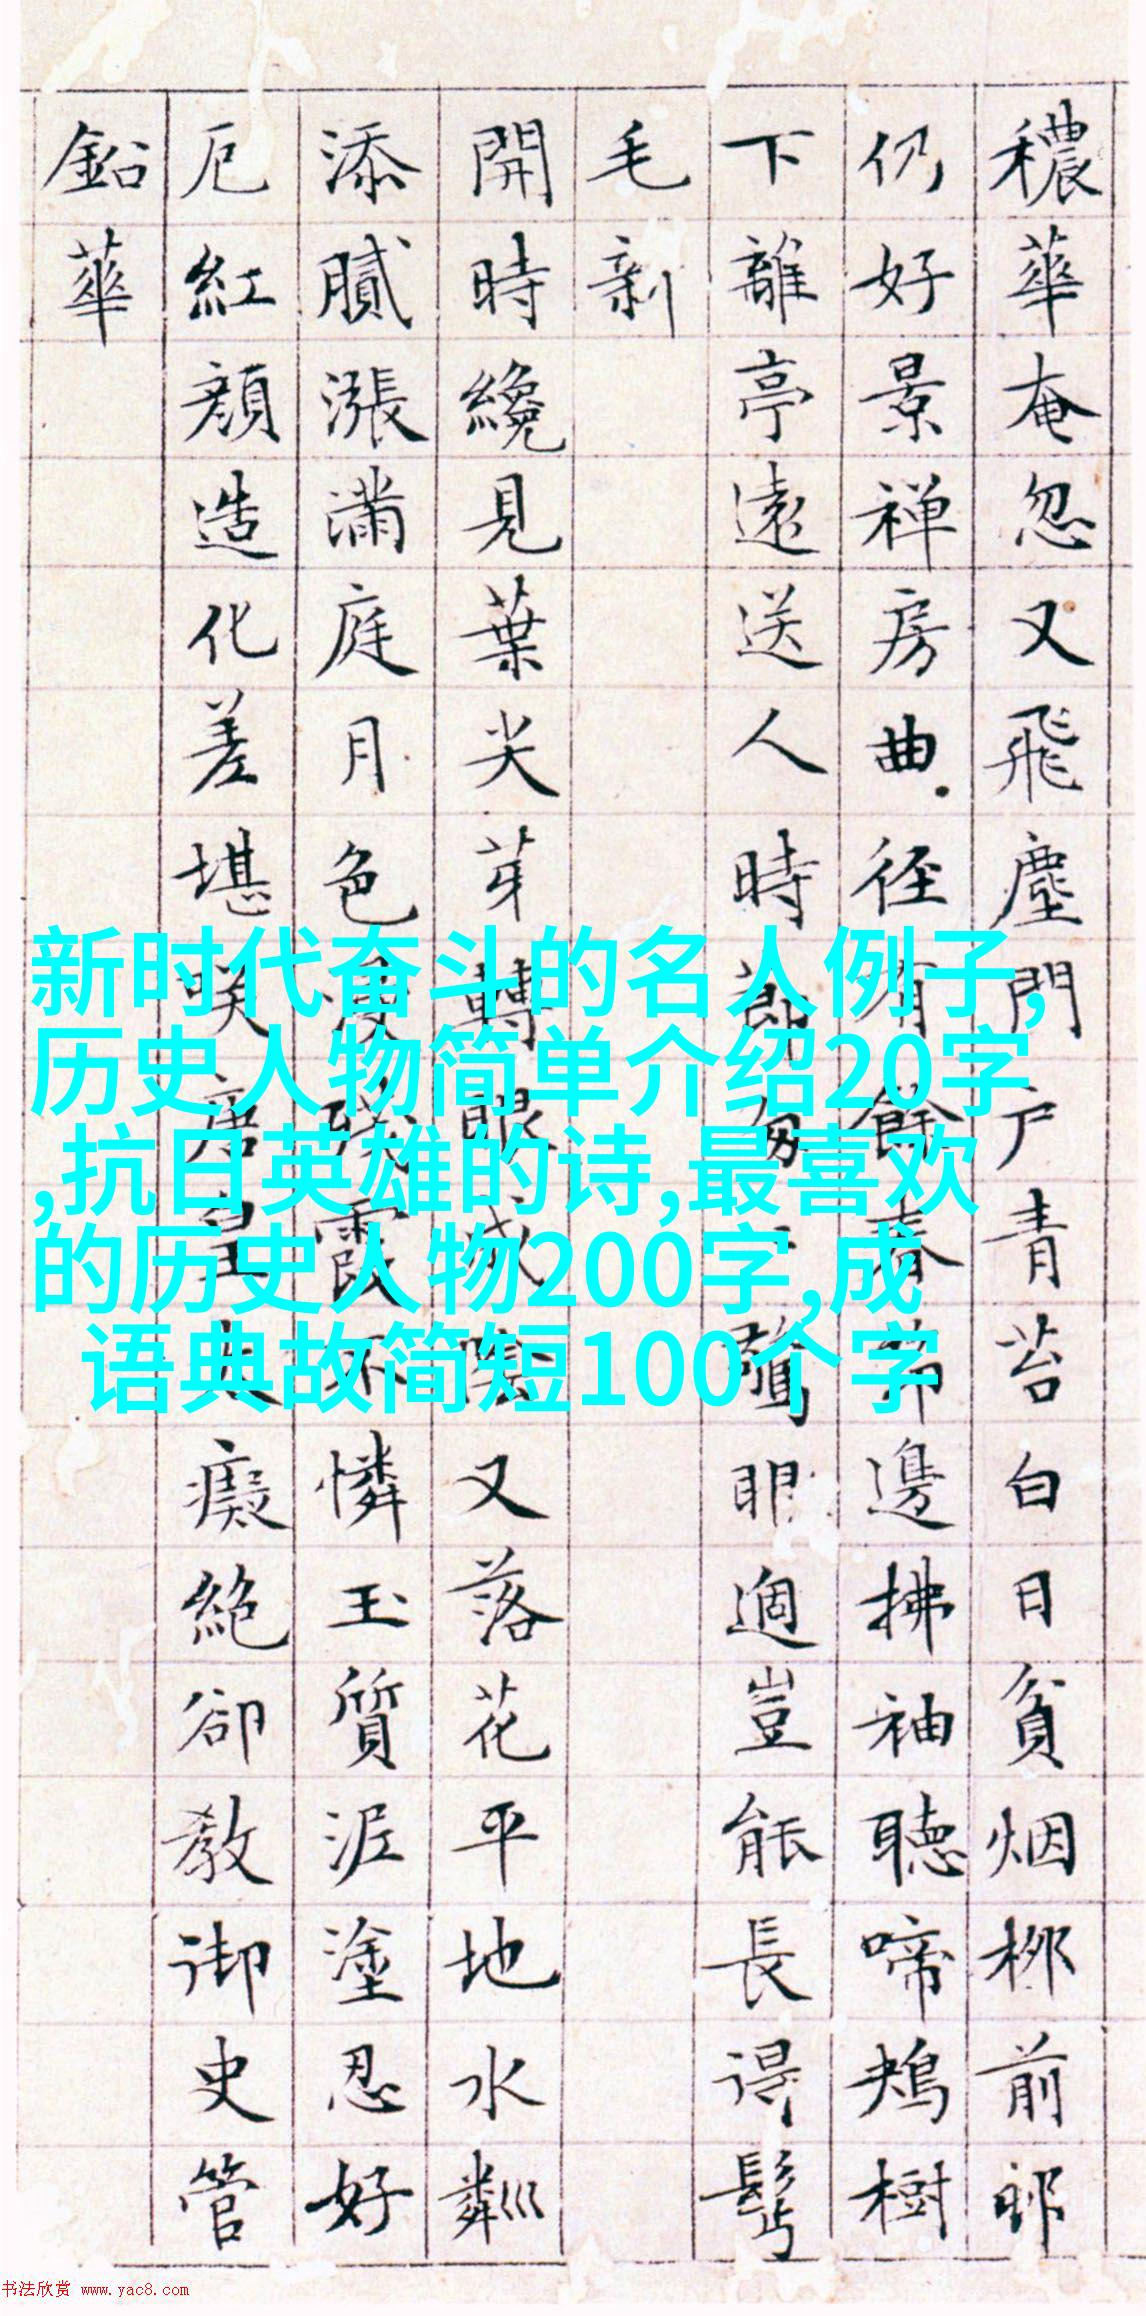 穠華奄忽又飛塵門戶青苔白日貧烟栁前邨
仍好景禅房曲径有餘春邊拂袖聴啼鳺樹
下離亭遠送人時節匆驚眼過豈能長得鬢
毛新
開時纔見葉尖芽轉眼成陰又落花平地水粼
添膩漲滿庭月色浸殘霞不憐玉質泥塗忍好
卮紅顔造化差堪咲唐皇太癡絶卻教御史管
鈆華
新时代奋斗的名人例子,
历史人物简单介绍20字
,抗日英雄的诗,最喜欢
的历史人物200字,成
语典故简短100个字
书法欣赏 www.yac8.com